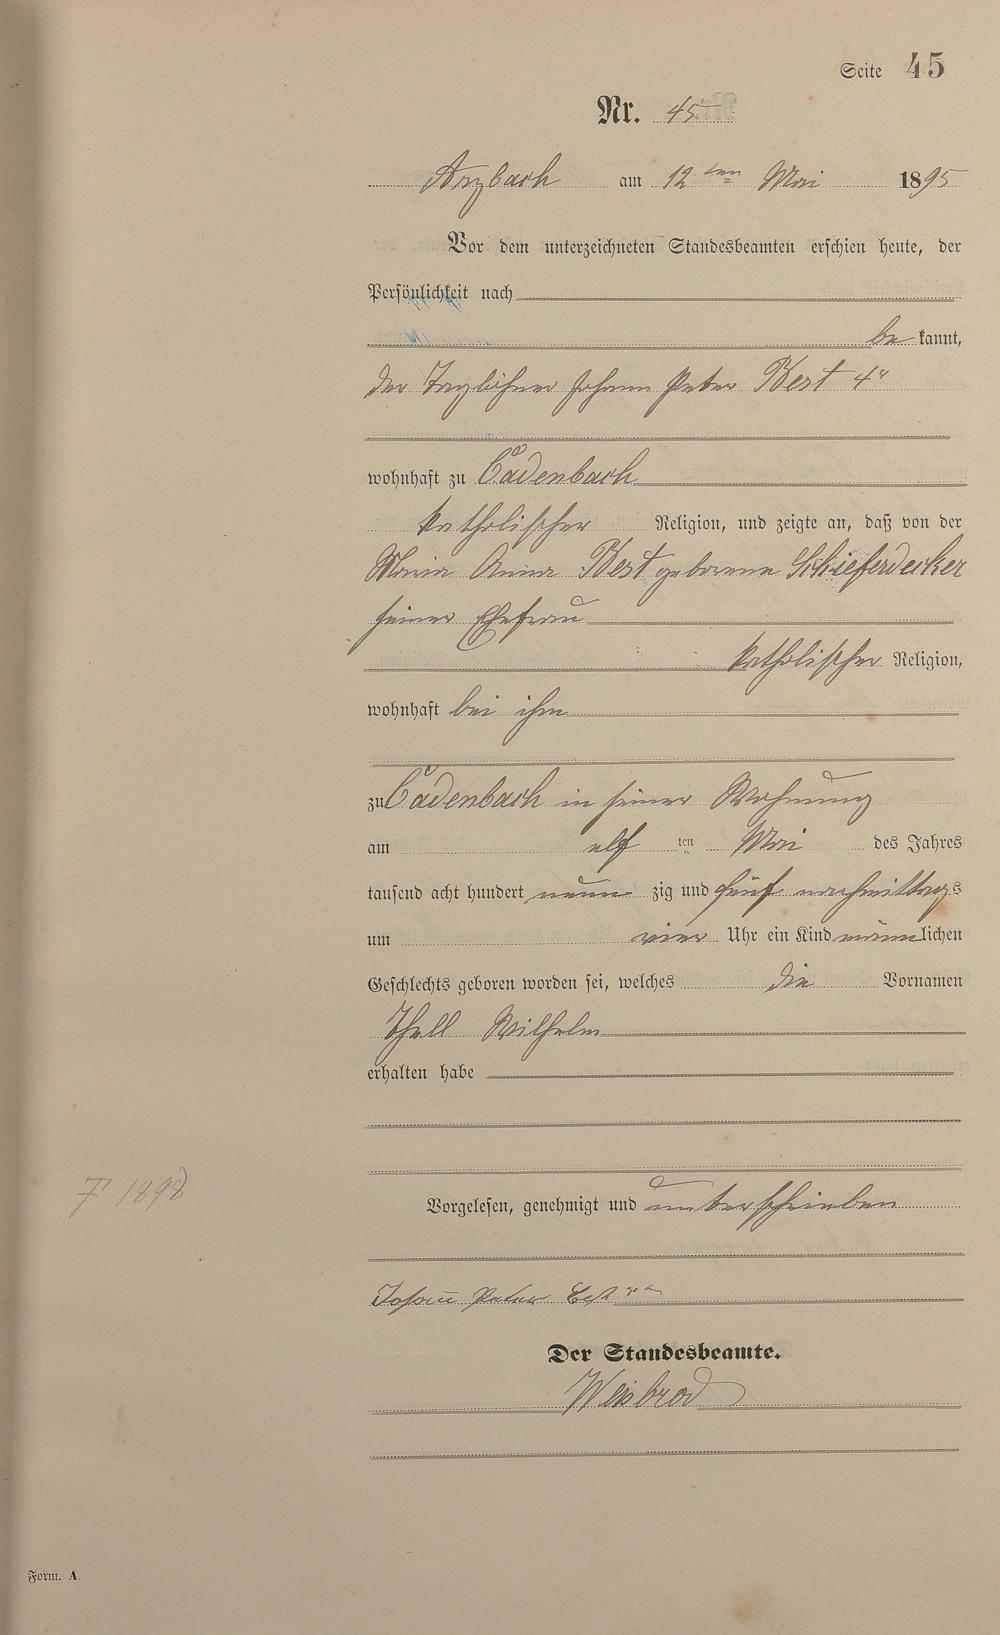 Seite 45
Nr. 45
Arzbach am 12ten Mai 1895
Vor dem unterzeichneten Standesbeamten erschien heute, der
Persönlichkeit nach
be kannt,
der Taglöhner Johann Peter Best 4r
wohnhaft zu Cadenbach
katholischer Religion, und zeigte an, daß von der
Maria Anna Best geborene Schieferdecker
seiner Ehefrau
katholischer Religion,
wohnhaft bei ihm
zu Cadenbach in seiner Wohnung
am elf ten Mai des Jahres
tausend acht hundert neun zig und fünf nachmittags
um vier Uhr ein Kind männlichen
Geschlechts geboren worden sei, welches die Vornamen
Wilhelm
erhalten habe
Vorgelesen, genehmigt und unterschrieben
Johann Peter Best
Der Standesbeamte.
Weisbrod
1898
Form. A.